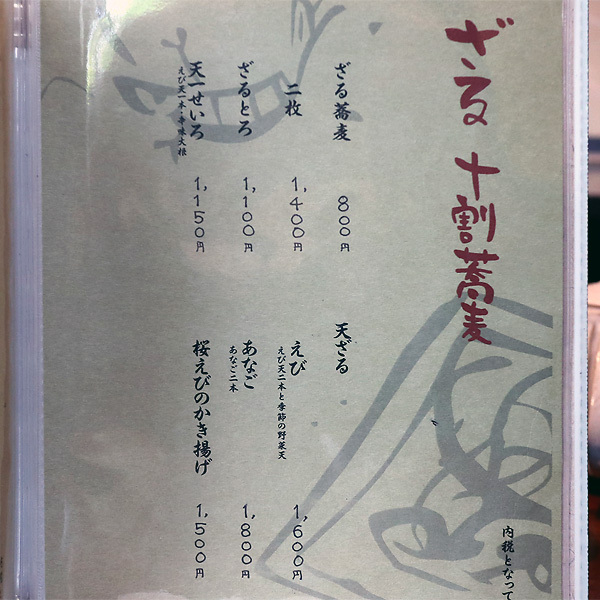 ざる 十割蕎麦
ざる蕎麦 800円
二枚 1,400円
ざるとろ 1,100円
天一せいろ 1,150円
えび天一本・辛味大根
天ざる
えび 1,600円
えび天二本と季節の野菜天
あなご 1,800円
あなご二本
桜えびのかき揚げ 1,500円
内税となって